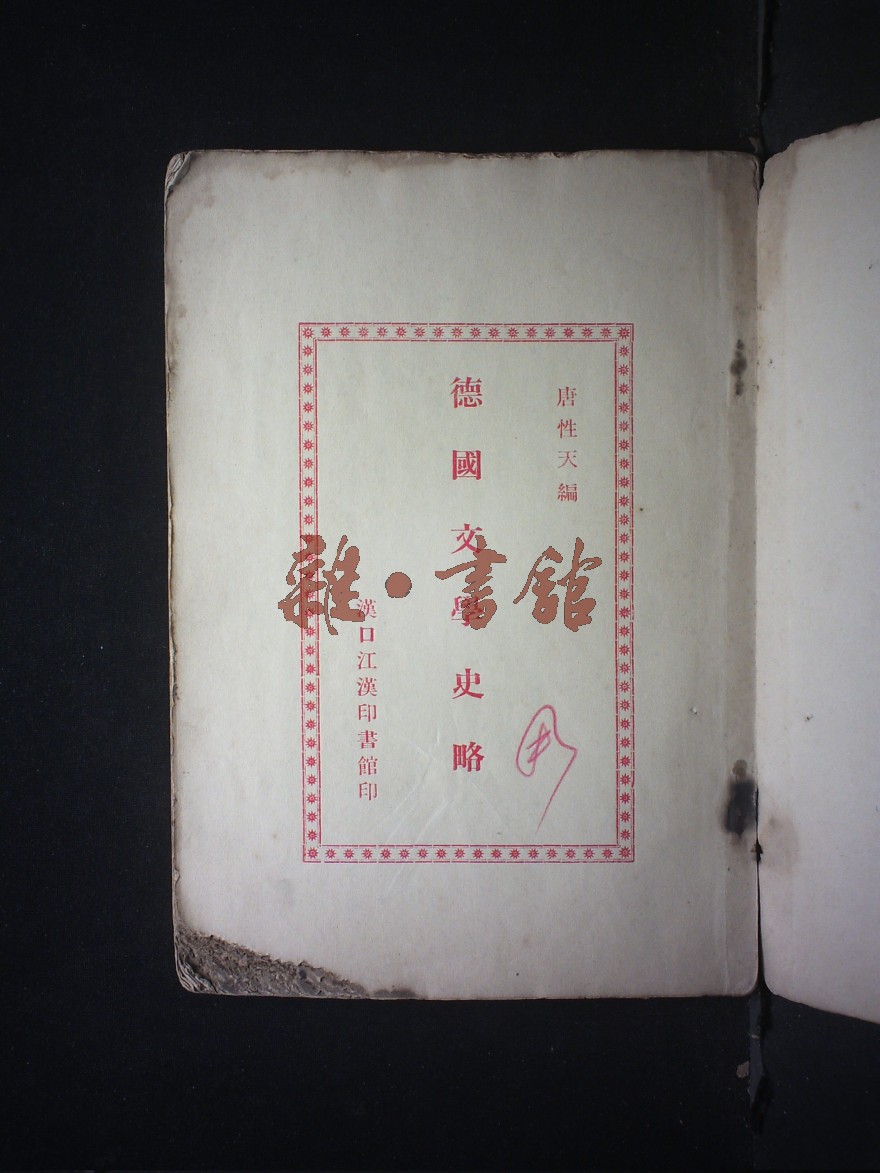 唐性天編
德國文學史略
漢口江漢印書館印
雜·書館